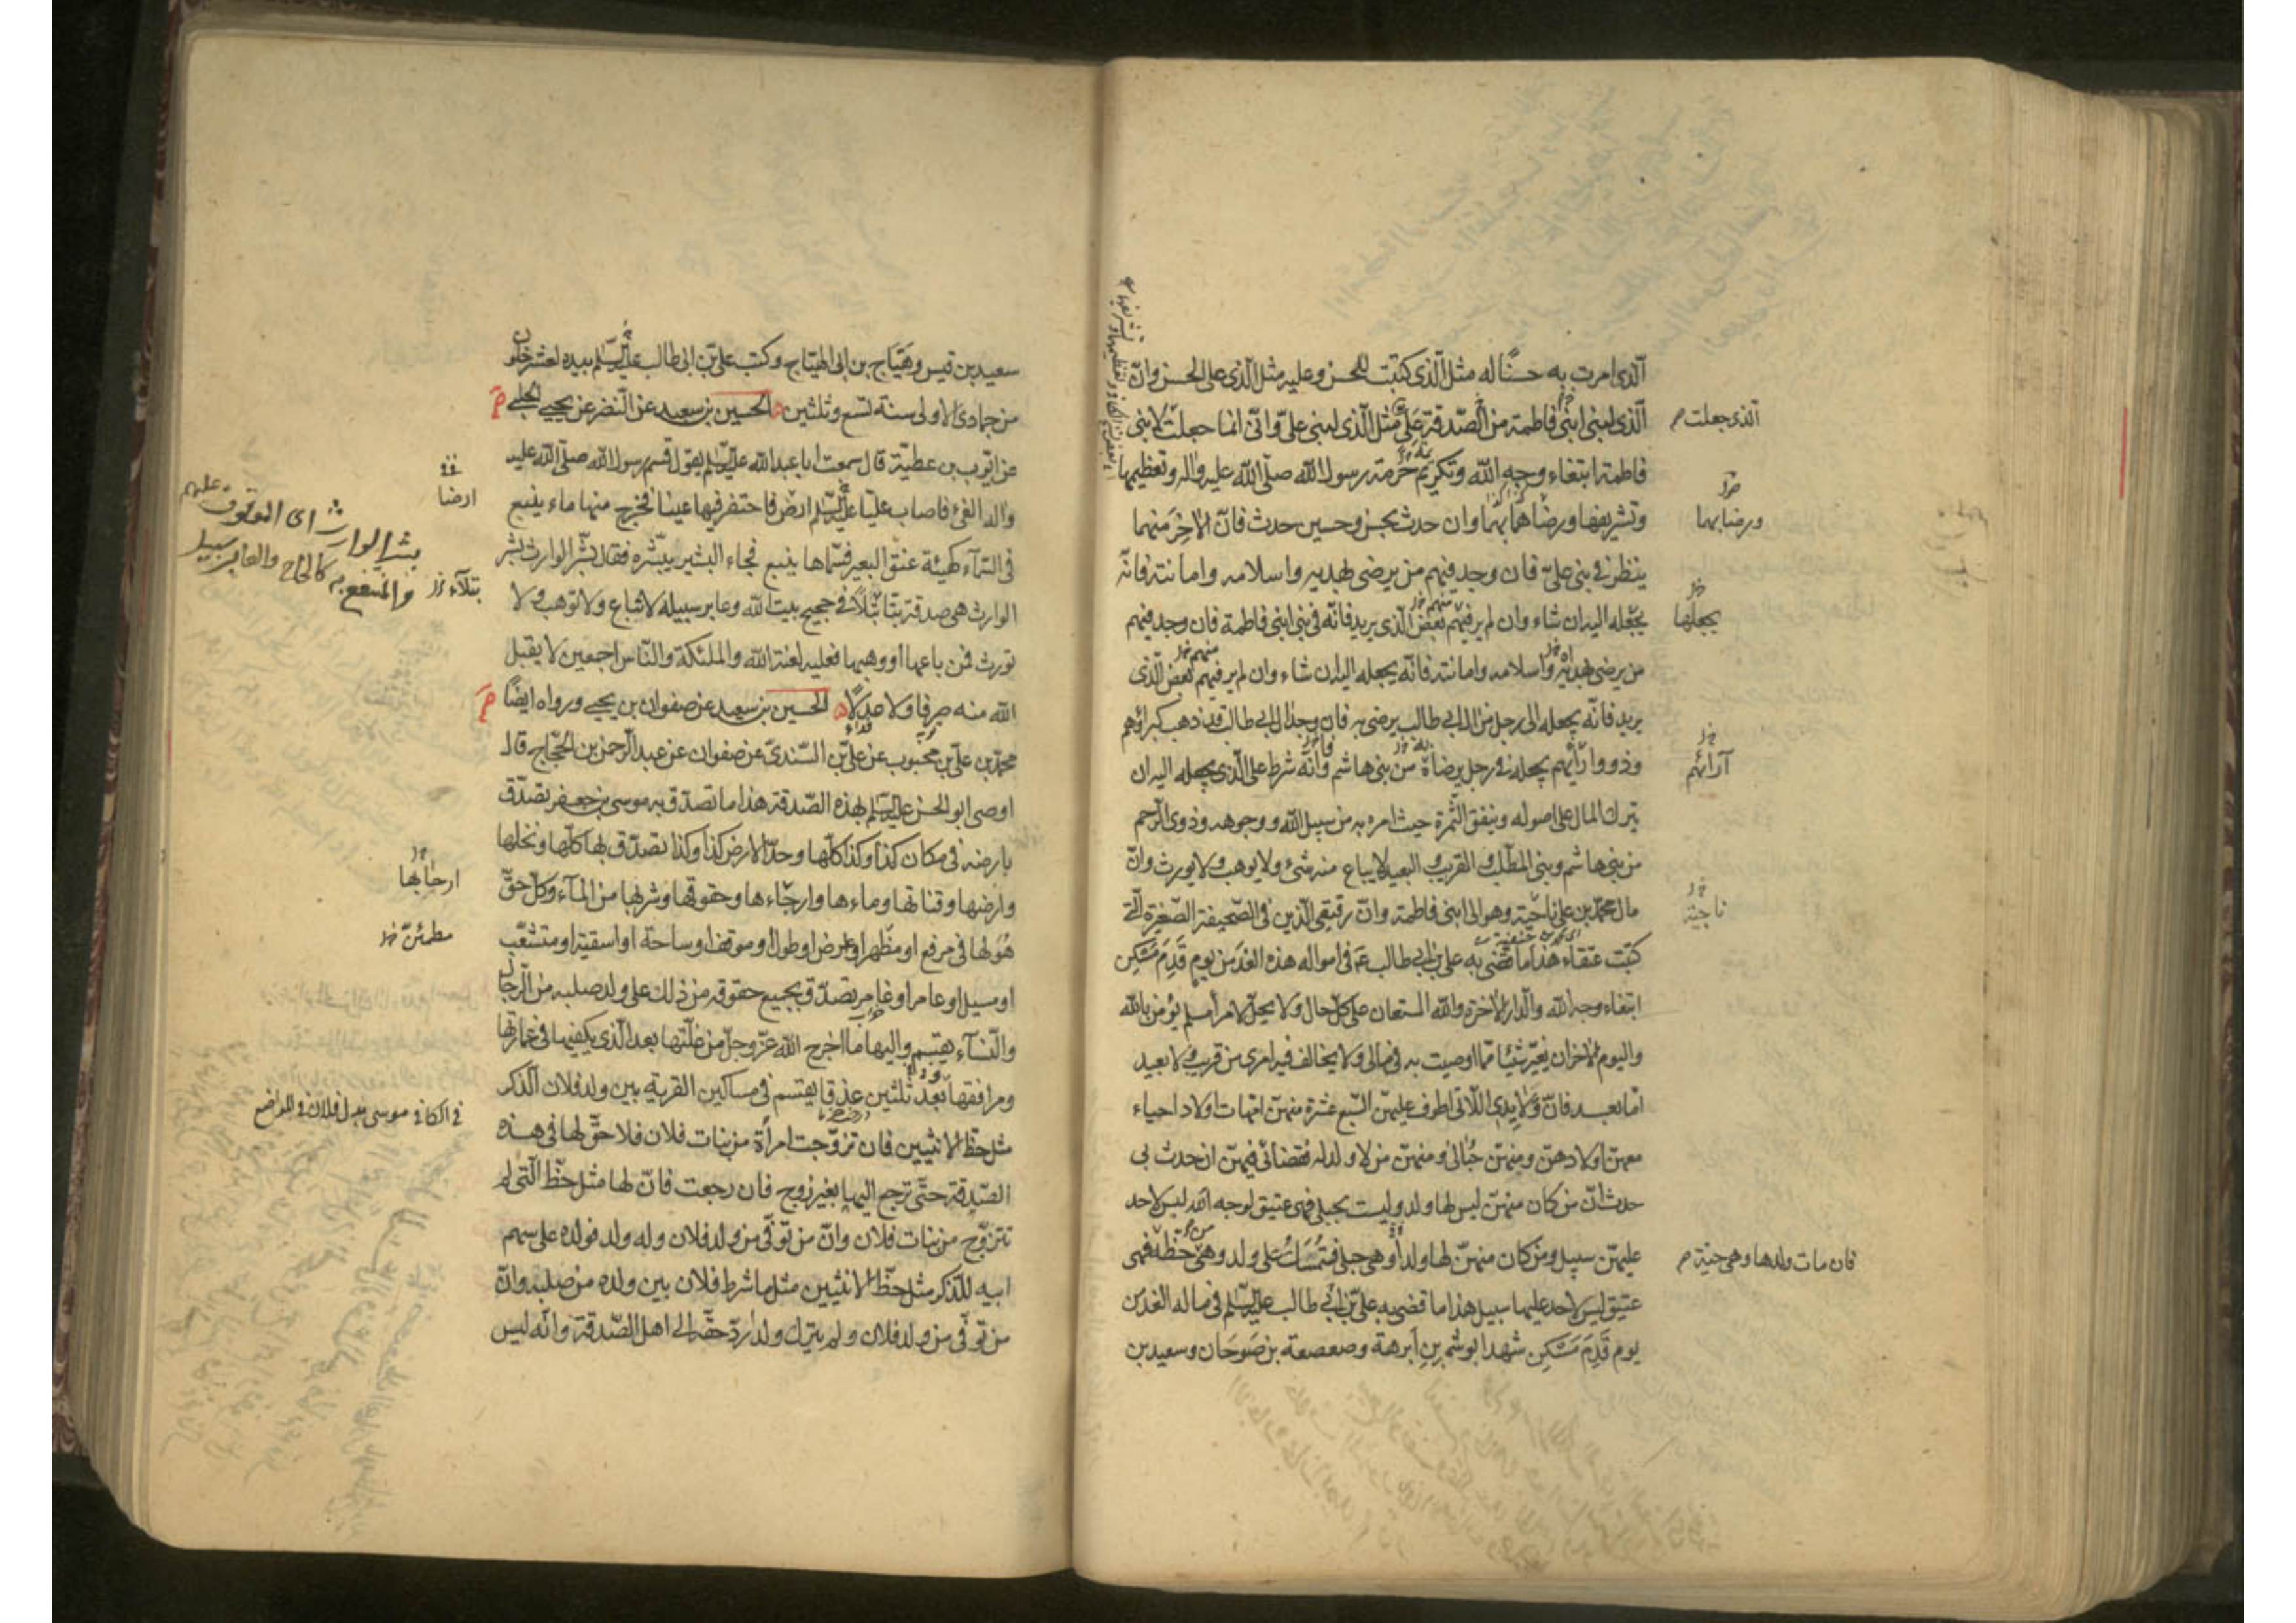 الذى امرت به حسنا له مثل الذى كتبت للحسن وعليه مثل الذى على الحسن وانّ
الذى لبنى ابنى فاطمة من الصّدقة علىّ مثل الذى لبنى علىّ وانّى انما جعلت لابنى
الذى جعلت
فاطمة ابتغاء وجه الله وتكريم حرمة رسول الله صلّى الله عليه واله وتعظيمها
وتشريفها ورضاهما بهما وان حدث بحسن وحسين حدث فانّ الاخِرَ منهما
ورضا بهما
ينظر فى بنى علىّ فان وجد فيهم من يرضى بهديه واسلامه وامانته فانّه
يجعله اليه ان شاء وان لم ير فيهم بعض الذى يريد فانّه فى بنى ابنى فاطمة فان وجد فيهم
يجعلها
من يرضى بهديه واسلامه وامانته فانّه يجعله اليه ان شاء وان لم ير فيهم بعض الّذى
يريد فانّه يجعله الى رجل من ال ابى طالب يرضى به فان وجد ال ابى طالب قد ذهب كبراؤهم
وذووا رأيهم يجعله فى رجل يرضاه من بنى هاشم وانّه شرط على الّذى يجعله اليه ان
آرائهم
يترك المال على اصوله وينفق الثّمرة حيث امره به من سبيل الله ووجوهه وذوى الرّحم
من بنى هاشم وبنى المطّلب والقريب والبعيد لا يباع منه شىء ولا يوهب ولا يورث وانّ
مال محمّد بن على ناحية وهو الى ابنى فاطمة وانّ رقيقى الّذين فى الصّحيفة الصّغيرة الّتى
ناجية
كتبت عتقاء هذا ما قضى به على بن ابى طالب ع فى امواله هذه الغد من يوم قَدِمَ مَسْكِن
ابتغاء وجه الله والدار الاخرة والله المستعان على كلّ حال ولا يحلّ لامرأ مسلم يؤمن بالله
واليوم الاخر ان يغيّر شيئا ممّا اوصيت به فى مالى ولا يخالف فيه امرى من قريب ولا بعيد
امّا بعد فانّ ولايدى اللّاتى اطوف عليهنّ السّبع عشرة منهنّ امّهات اولاد احياء
معهنّ اولادهنّ ومنهنّ حُبالى ومنهنّ من لا ولد له فقضائى فيهنّ ان حدث بى
حدث انّ من كان منهنّ ليس لها ولد وليست بحبلى فهى عتيق لوجه الله ليس لاحد
عليهنّ سبيل ومن كان منهنّ لها ولد أو هى حبلى فتُمسَكُ على ولده وهى من حظّه فهى
فان مات ولدها وهى حيّة
عتيق ليس لاحد عليها سبيل هذا ما قضى به علىّ بن ابى طالب عليه السّلم فى ماله الغد من
يوم قَدِمَ مَسْكِن شهد ابو شمر بن أبرهة وصعصعة بن صَوحَان وسعيد بن
سعيد بن قيس وهَيّاج بن ابى الهيّاج وكتب علىّ بن ابى طالب عليه السّلم بيده لعشر خلون
من جمادى الاولى سنة تسع وثلثين الحسين بن سعيد عن النّضر عن يحيى الحلبى
عن ايّوب بن عطيّة قال سمعت ابا عبد الله عليه السّلم يقول قسم رسول الله صلّى الله عليه
واله الفىء فاصاب عليّا عليه السّلم ارض فاحتفر فيها عينا فخرج منها ماء ينبع
ارضا
فى السّماء كهيئة عنق البعير فسمّاها ينبع فجاء البشير يبشّره فقال بشّر الوارث بشّر
الوارث هى صدقة بتّا بتلاً فى حجيج بيت الله وعابر سبيله لا تباع ولا توهب ولا
بتلاء
تورث فمن باعها او وهبها فعليه لعنة الله والملئكة والنّاس اجمعين لا يقبل
الله منه صرفا ولا عدلاً الحسين بن سعيد عن صفوان بن يحيى ورواه ايضًا
محمّد بن علىّ بن محبوب عن علىّ بن السّندى عن صفوان عن عبد الرّحمن بن الحجّاج قال
اوصى ابو الحسن عليه السّلم بهذه الصّدقة هذا ما تصدّق به موسى بن جعفر تصدّق
بارضه فى مكان كذا وكذا كلّها وحدّ الارض كذا وكذا تصدّق بها كلّها ونخلها
وارضها وقناتها وماءها وارجاءها وحقوقها وشربها من الماء وكلّ حقّ
ارحابها
هُوَ لها فى مرفع او مظهر او عرض او طول او موقف او ساحة او اسقية او متشعّب
مطمئنّ
او مسيل او عامر او غامر تصدّق بجميع حقوقه من ذلك على ولد صلبه من الرّجال
والنّساء يقتسم واليها ما اخرج الله عزّ وجلّ من غلّتها بعد الّذى يكفيها فى عمارتها
ومرافقها بعد ثلثين عذقا يقتسم فى مساكين القرية بين ولد فلان الذّكر
فى الكافى موسى بدل فلان فى المواضع
مثل حظّ الانثيين فان تزوّجت امرأة من بنات فلان فلا حقّ لها فى هذه
الصّدقة حتّى ترجع اليها بغير زوج فان رجعت فانّ لها مثل حظّ الّتى لم
تتزوّج من بنات فلان وانّ من توفّى من ولد فلان وله ولد فولده على سهم
ابيه للذّكر مثل حظّ الانثيين مثل ما شرط فلان بين ولده من صلبه وانّ
من توفّى من ولد فلان ولم يترك ولدا ردّ حقّه الى اهل الصّدقة وانّه ليس